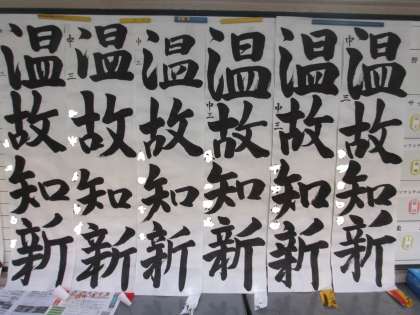 温故知新
中三
温故知新
中三
温故知新
中二
温故知新
中三
温故知新
中三
温故知新